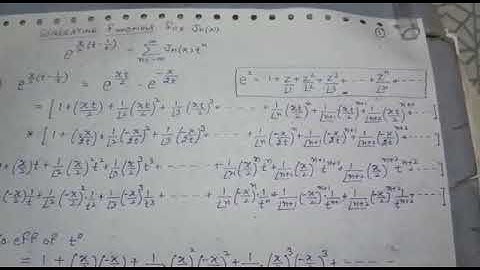 Generating Function for Jn(x)
①
e^{x/2(t-1/t)} = ∑_{n=-∞}^{∞} Jn(x)t^n
e^{x/2(t-1/t)} = e^{xt/2} · e^{-x/2t}
e^z = 1+z/⌊1+z²/⌊2+z³/⌊3+-----+z^n/⌊n+----
= [1+(xt/2)+1/⌊2(xt/2)²+1/⌊3(xt/2)³+------+1/⌊n(xt/2)^n+1/⌊n+1(xt/2)^{n+1}+---]
* [1+(-x/2t)+1/⌊2(-x/2t)²+1/⌊3(-x/2t)³+------+1/⌊n(-x/2t)^n+1/⌊n+1(-x/2t)^{n+1}+---]
+(x/2)t+1/⌊2(x/2)²t²+1/⌊3(x/2)³t³+------+1/⌊n(x/2)^n t^n+1/⌊n+1(x/2)^{n+1}t^{n+1}+1/⌊n+2(x/2)^{n+2}t^{n+2}+---]
(-x/2)1/t+1/⌊2(-x/2)²1/t²+1/⌊3(-x/2)³1/t³+------+1/⌊n(-x/2)^n 1/t^n+1/⌊n+1(-x/2)^{n+1}1/t^{n+1}+1/⌊n+2(-x/2)^{n+2}1/t^{n+2}+---]
eff of t⁰
= 1+(x/2)(-x/2)+1/(x/2)²(-x/2)²+1/(x/2)³(-x/2)³+------